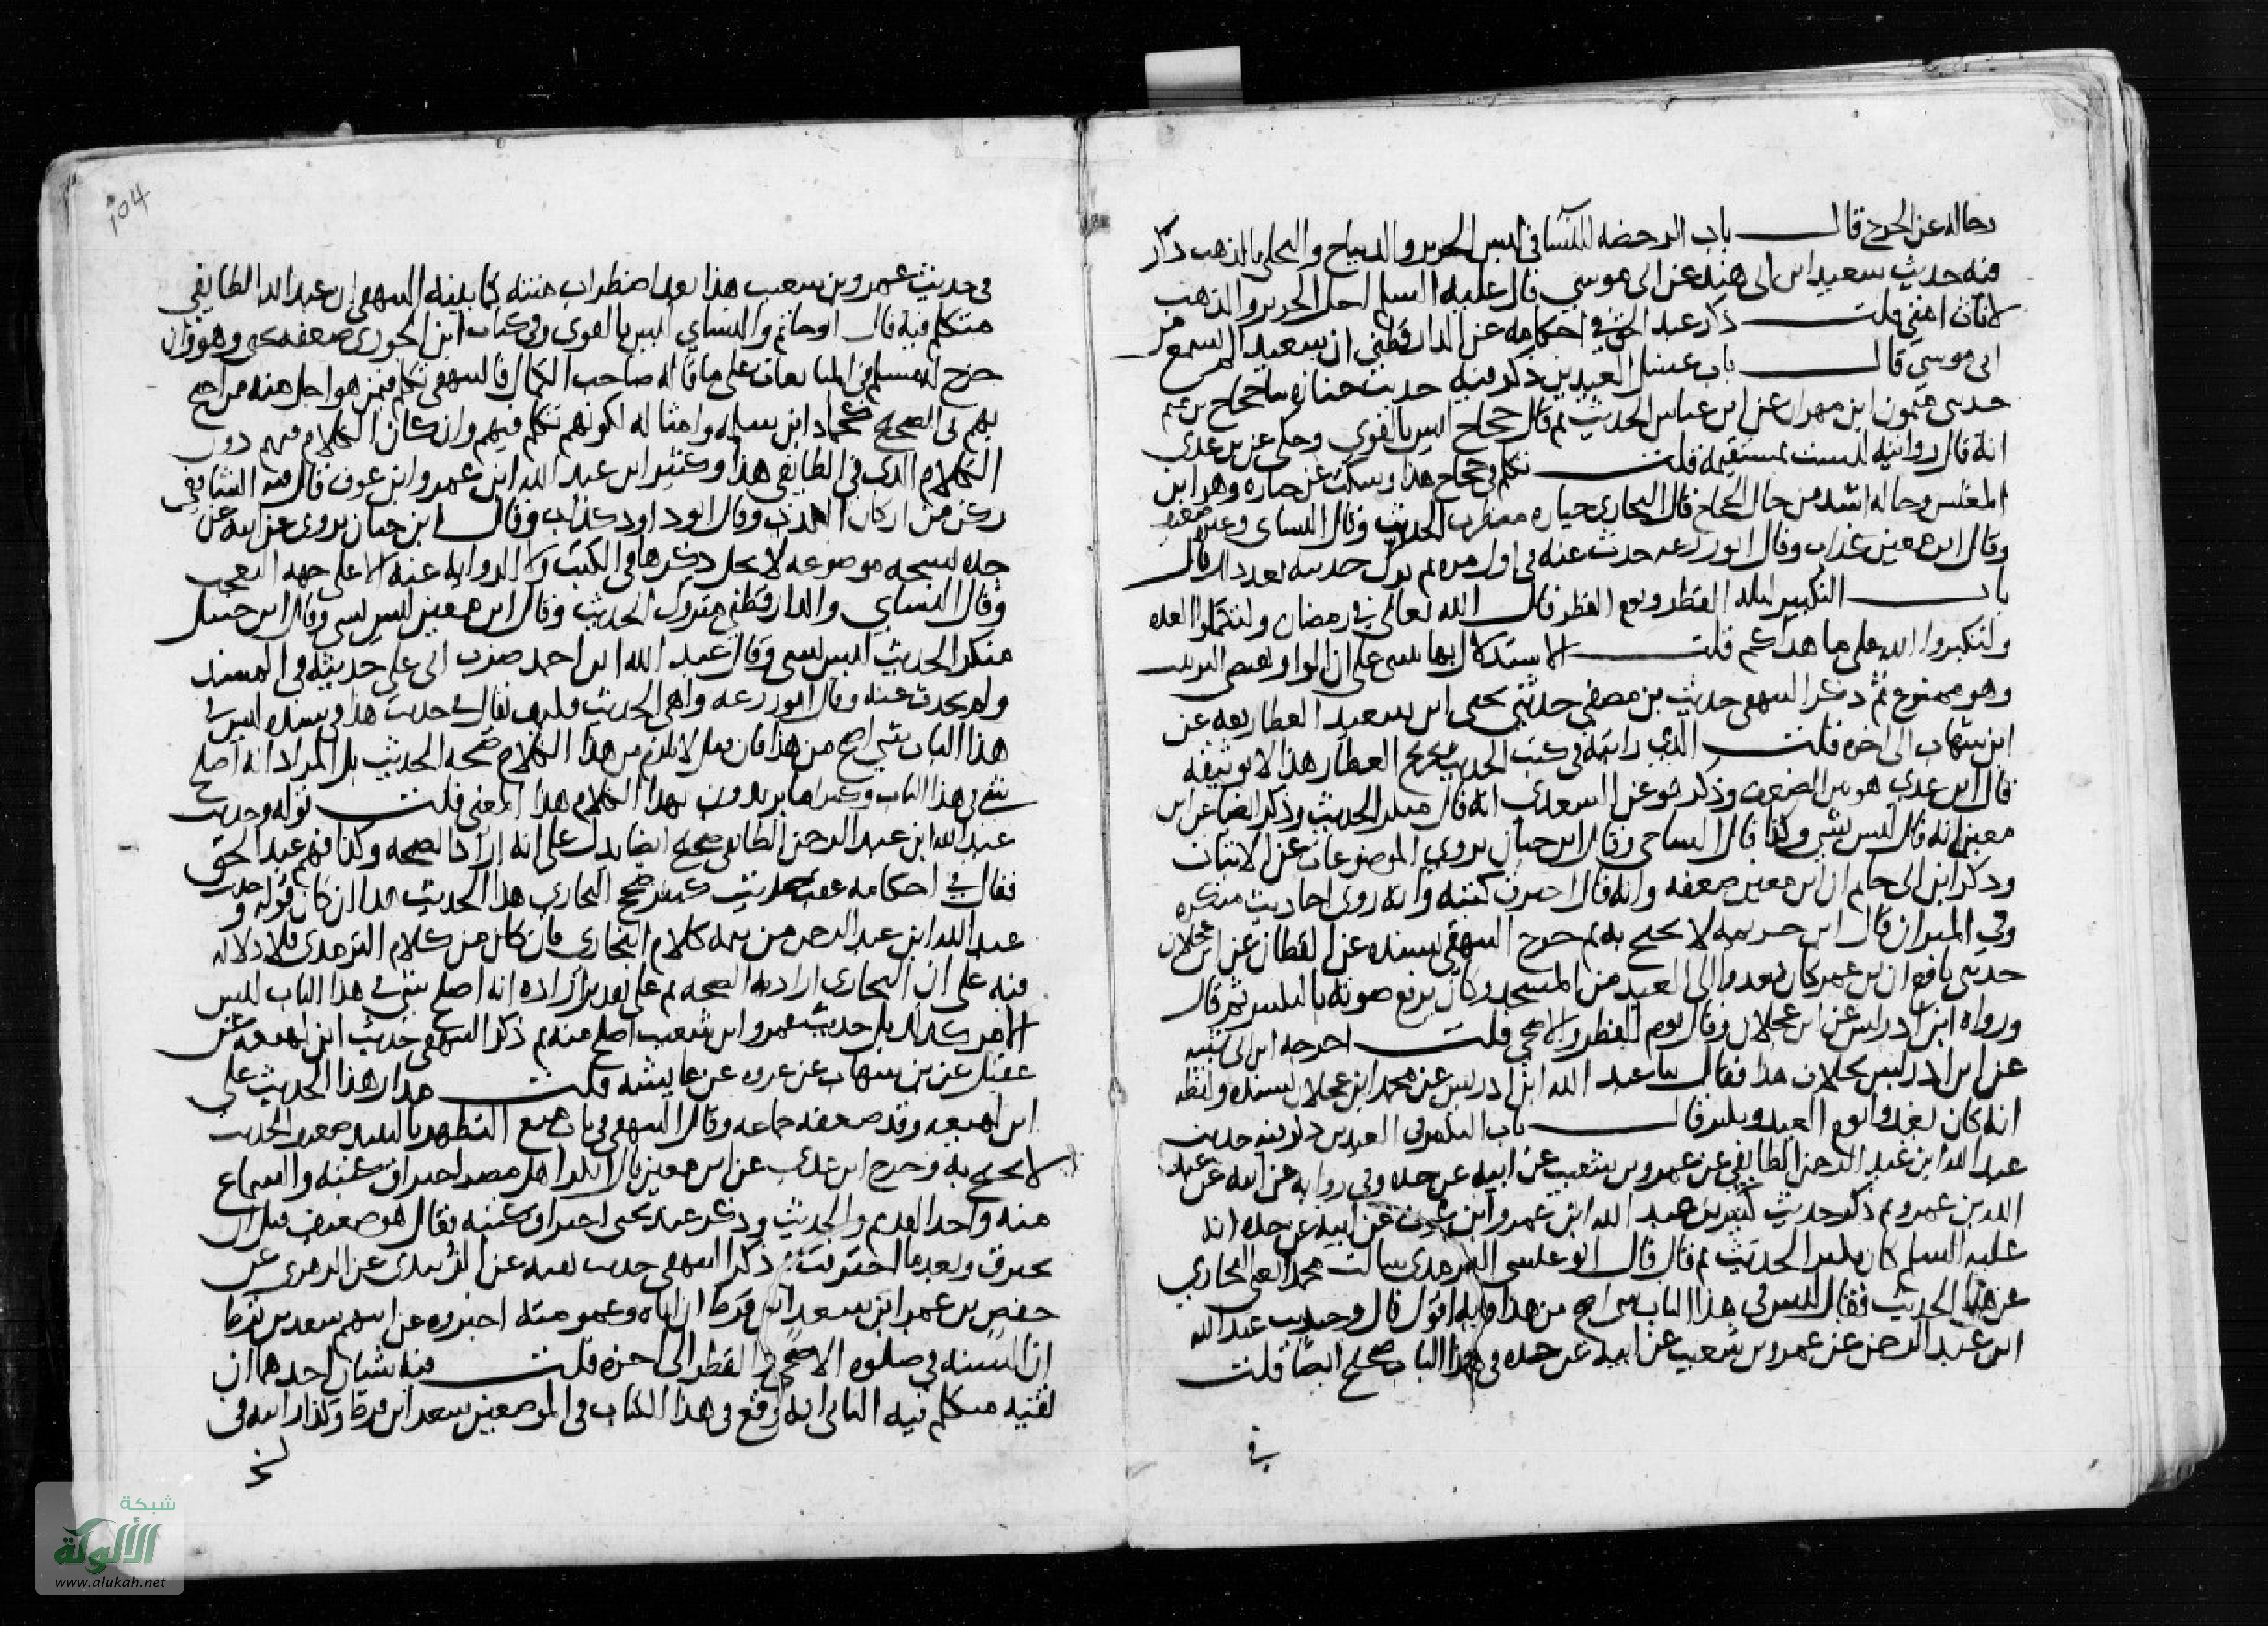 رجاله عن الجرح قال باب الرخصه للنسا في لبس الحرير والديباج والتحلي بالذهب ذكر
فيه حديث سعيد ابن ابي هند عن ابي موسي قال عليه السلم احل الحرير والذهب
لاناث امتي قلت ذكر عبد الحق في احكامه عن الدارقطني ان سعيدا لم يسمع من
ابي موسي قال باب غسل العيدين ذكر فيه حديث جباره ثنا حجاج بن تميم
حدثني ميمون ابن مهران عن ابن عباس الحديث ثم قال حجاج ليس بالقوي وحكي عن بن عدي
انه قال رواياته ليست بمستقيمه قلت تكلم في حجاج هذا وسكت عن جباره وهو ابن
المغلس وحاله اشد من حال الحجاج قال البخاري جباره مضطرب الحديث وقال النساي وغيره ضعيف
وقال ابن معين كذاب وقال ابو زرعه حدث عنه في اول مره ثم ترك حديثه بعد ذلك قال
باب التكبير ليله الفطر ويوم الفطر قال الله تعالى في رمضان ولتكملوا العده
ولتكبروا الله على ما هداكم قلت الاستدلال بها مبني على ان الواو تقتضي الترتيب
وهو ممنوع ثم ذكر البيهقي حديث بن مصفي حدثني يحيى ابن سعيد العطار بعه عن
ابن شهاب الى اخره قلت الذي رايته في كتب الحديث تجريح العطار هذا لا توثيقه
قال ابن عدي هو بين الضعف وذكر هو عن السعدي انه قال منكر الحديث وذكر ايضا عن ابن
معين انه قال ليس بشي وكذا قال الساجي وقال ابن حبان يروي الموضوعات عن الاثبات
وذكر ابن ابي حاتم ان ابن معين ضعفه وانه قال احترقت كتبه وانه روى احاديث منكره
وفي الميزان قال ابن خزيمه لا يحتج به ثم خرج البيهقي بسنده عن القطان عن ابن عجلان
حدثني نافع ان بن عمر كان يغدوا الى العيد من المسجد وكان يرفع صوته بالتكبير ثم قال
ورواه ابن ادريس عن ابن عجلان وقال يوم الفطر والاضحي قلت اخرجه ابن ابي شيبه
عن ابن ادريس بخلاف هذا فقال ثنا عبد الله ابن ادريس عن محمد ابن عجلان بسنده ولفظه
انه كان يغدوا يوم العيد ويكبر قال باب التكبير في العيدين ذكر فيه حديث
عبد الله ابن عبد الرحمن الطايفي عن عمرو بن شعيب عن ابيه عن جده وفي روايه عن ابيه عن عبد
الله بن عمرو ثم ذكر حديث كثير بن عبد الله ابن عمرو ابن عوف عن ابيه عن جده انه
عليه السلم كان يكبر الحديث ثم قال قال ابو عيسى الترمذي سالت محمدا يعني البخاري
عن هذا الحديث فقال ليس في هذا الباب شي اصح من هذا وبه اقول قال وحديث عبد الله
ابن عبد الرحمن عن عمرو بن شعيب عن ابيه عن جده في هذا الباب صحيح ايضا قلت
في
104
في حديث عمرو بن شعيب هذا بعد اضطراب متنه كما بينه البيهقي ان عبد الله الطايفي
متكلم فيه قال ابو حاتم والنساي ليس بالقوي وفي كتاب ابن الجوزي ضعفه يحيى وهو وان
خرج له مسلم في المتابعات على ما قاله صاحب الكمال فالبيهقي تكلم فيمن هو اجل منه ممن احتج
بهم في الصحيح كحماد ابن سلمه وامثاله لكونهم تكلم فيهم وان كان الكلام فيهم دون
الكلام الذي في الطايفي هذا وكثير ابن عبد الله ابن عمرو ابن عوف قال فيه الشافعي
ركن من اركان الكذب وقال ابو داود كذاب وقال ابن حبان يروي عن ابيه عن
جده نسخه موضوعه لا يحل ذكرها في الكتب ولا الروايه عنه الا على جهه التعجب
وقال النساي والدارقطني متروك الحديث وقال ابن معين ليس بشي وقال ابن حنبل
منكر الحديث ليس بشي وقال عبد الله ابن احمد ضرب ابي على حديثه في المسند
ولم يحدث عنه وقال ابو زرعه واهي الحديث فكيف يقال في حديث هذا في سنده ليس في
هذا الباب شي اصح من هذا فان قيل لا يلزم من هذا الكلام صحه الحديث بل المراد انه اصح
شي في هذا الباب وكثيرا ما يريدون بهذا الكلام هذا المعني قلت قوله وحديث
عبد الله ابن عبد الرحمن الطايفي صحيح ايضا يدل على انه اراد الصحه وكذا فهم عبد الحق
فقال في احكامه عقيب حديث كثير صحح البخاري هذا الحديث هذا ان كان قوله وحديث
عبد الله ابن عبد الرحمن من تتمه كلام البخاري فان كان من كلام الترمذي فلا دلاله
فيه على ان البخاري اراد به الصحه ثم على تقدير ارادة انه اصح شي في هذا الباب ليس
الامر كذلك بل حديث عمرو ابن شعيب اصح منه ثم ذكر البيهقي حديث ابن لهيعه عن
عقيل عن بن شهاب عن عروه عن عايشه قلت مدار هذا الحديث على
ابن لهيعه وقد ضعفه جماعه وقال البيهقي في باب منع التطهر بالنبيذ ضعيف الحديث
لا يحتج به وخرج ابن عدي عن ابن معين قال انكر اهل مصر احتراق كتبه والسماع
منه واحد القديم والحديث وذكر عند يحيى احتراق كتبه فقال هو ضعيف قبل ان
تحترق وبعد ما احترقت ثم ذكر البيهقي حديث بقيه عن الزبيدي عن الزهري عن
حفص بن عمر ابن سعد ابن قرظ ان اباه وعمومته اخبروه عن ابيهم سعد بن قرظ
ان السنه في صلوه الاضحي والفطر الى اخره قلت فيه شيان احدهما ان
بقيه متكلم فيه الثاني انه وقع في هذا الكتاب في الموضعين سعد ابن قرظ وكذا رايته في
نسخ
شبكة
الألوكة
www.alukah.net